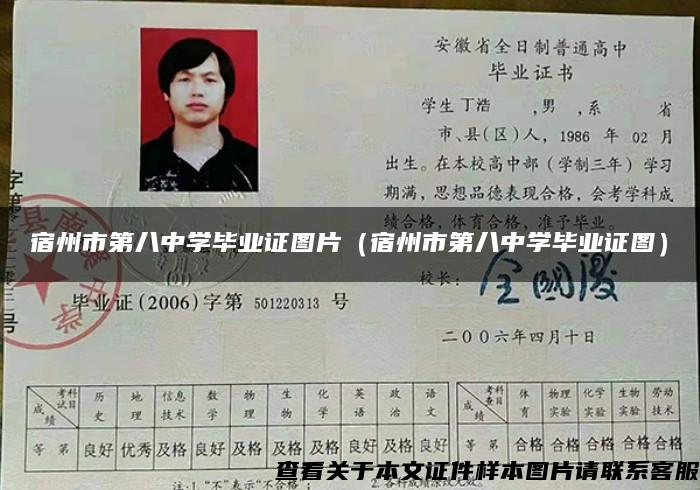 安徽省全日制普通高中
毕业证书
学生 丁浩 ,男 ,系 省
市、县(区)人，1986 年 02 月
出生。在本校高中部（学制三年）学习
期满，思想品德表现合格，会考学科成
绩合格，体育合格，准予毕业。
宿州市第八中学毕业证图片（宿州市第八中学毕业证图）
校长：
毕业证(2006)字第 501220313 号
二〇〇六年四月十日
考科试目 成绩 历史 地理 信息技术 数学 物理 生物 化学 英语 政治 语文
等第 良好 优秀 及格 良好 及格 及格 及格 良好 及格 良好
考科查目 成绩 体育 物理实验 化学实验 生物实验 劳动技术
等第 合格 合格 合格 合格 合格
注:1."不"表示"不合格"；
查看关于本文证件样本图片请联系客服